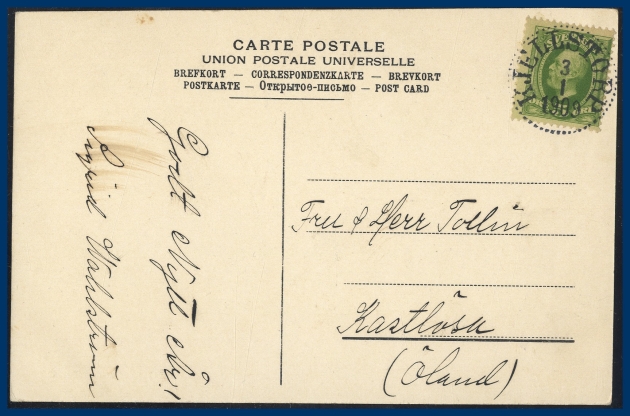 CARTE POSTALE
UNION POSTALE UNIVERSELLE
BREFKORT — CORRESPONDENZKARTE — BREVKORT
POSTKARTE — Открытое-письмо — POST CARD
KJELLSTORP
3
1
1909
Godt Nytt År!
Sigrid Wahlström
Fru & Herr Tollin
Kastlösa
(Öland)